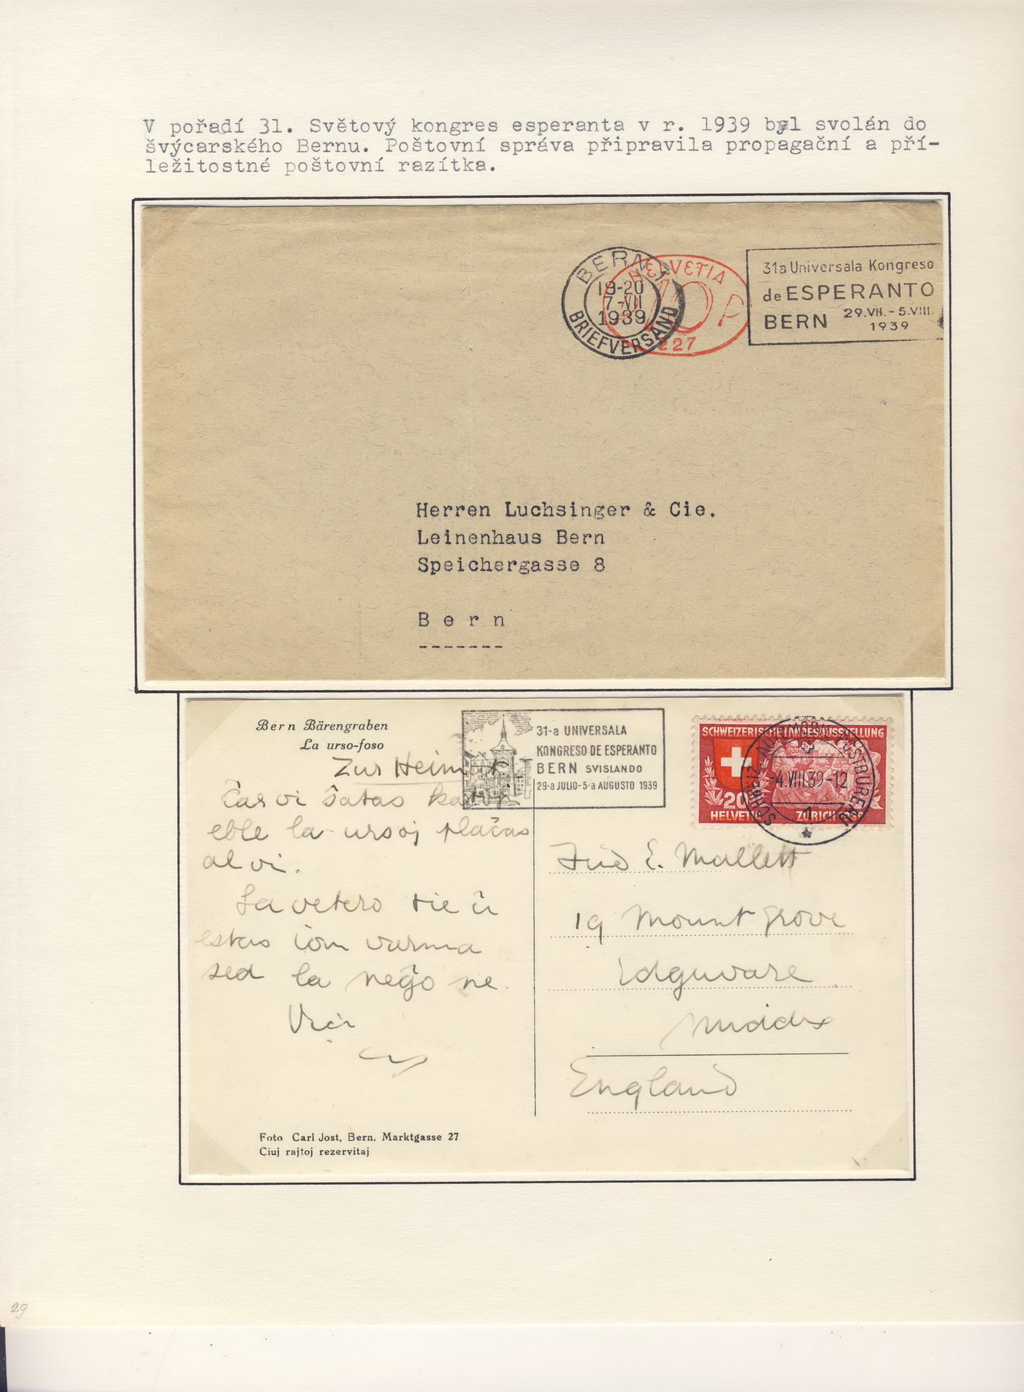 V pořadí 31. Světový kongres esperanta v r. 1939 byl svolán do
švýcarského Bernu. Poštovní správa připravila propagační a pří-
ležitostné poštovní razítka.
BERN 1
19-20
7-VII
1939
BRIEFVERSAND
HELVETIA
10 P
227
31a Universala Kongreso
de ESPERANTO
BERN 29.VII.-5.VIII.
1939
Herren Luchsinger & Cie.
Leinenhaus Bern
Speichergasse 8
Bern
-------
Bern Bärengraben
La urso-foso
Zur Heimat
31-a UNIVERSALA
KONGRESO DE ESPERANTO
BERN SVISLANDO
29-a JULIO-5-a AUGUSTO 1939
SCHWEIZERISCHE LANDESAUSSTELLUNG
20
HELVETIA ZÜRICH
SCHWEIZ. AUTOMOBIL-POSTBUREAU
-4.VIII.39-12
1
Ĉar vi ŝatas
eble la ursoj plaĉas
al vi.
La vetero tie ĉi
estas iom varma
sed la neĝo ne.
Fred E. Mallett
19 Mount Grove
Edgware
Middx
England
Foto Carl Jost, Bern, Marktgasse 27
Ciuj rajtoj rezervitaj
29